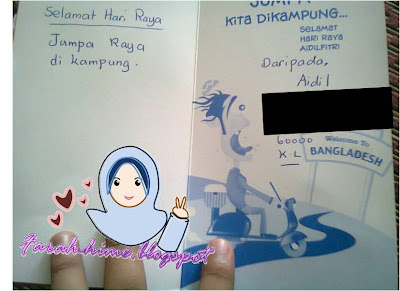 Selamat Hari Raya
Jumpa Raya
di kampung.
JUMPA
KITA DIKAMPUNG...
SELAMAT
HARI RAYA
AIDILFITRI
Daripada,
Aidil
60000
K.L
Welcome To
BANGLADESH
Farah-hime.blogspot